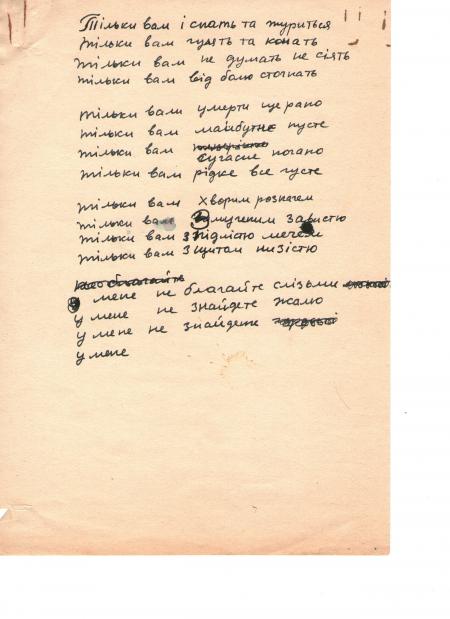 Тільки вам і спать та журиться
тільки вам гулять та конать
тільки вам не думать не сіять
тільки вам від болю стогнать
тільки вам умерти ще рано
тільки вам майбутнє пусте
тільки вам
сучасне погано
тільки вам рідке все густе
тільки вам хворим розпачем
тільки вам змученим завистю
тільки вам з підлістю мечем
тільки вам з щитом низістю
не благайте
у мене не благайте слізьми
у мене не знайдете жалю
у мене не знайдете
у мене